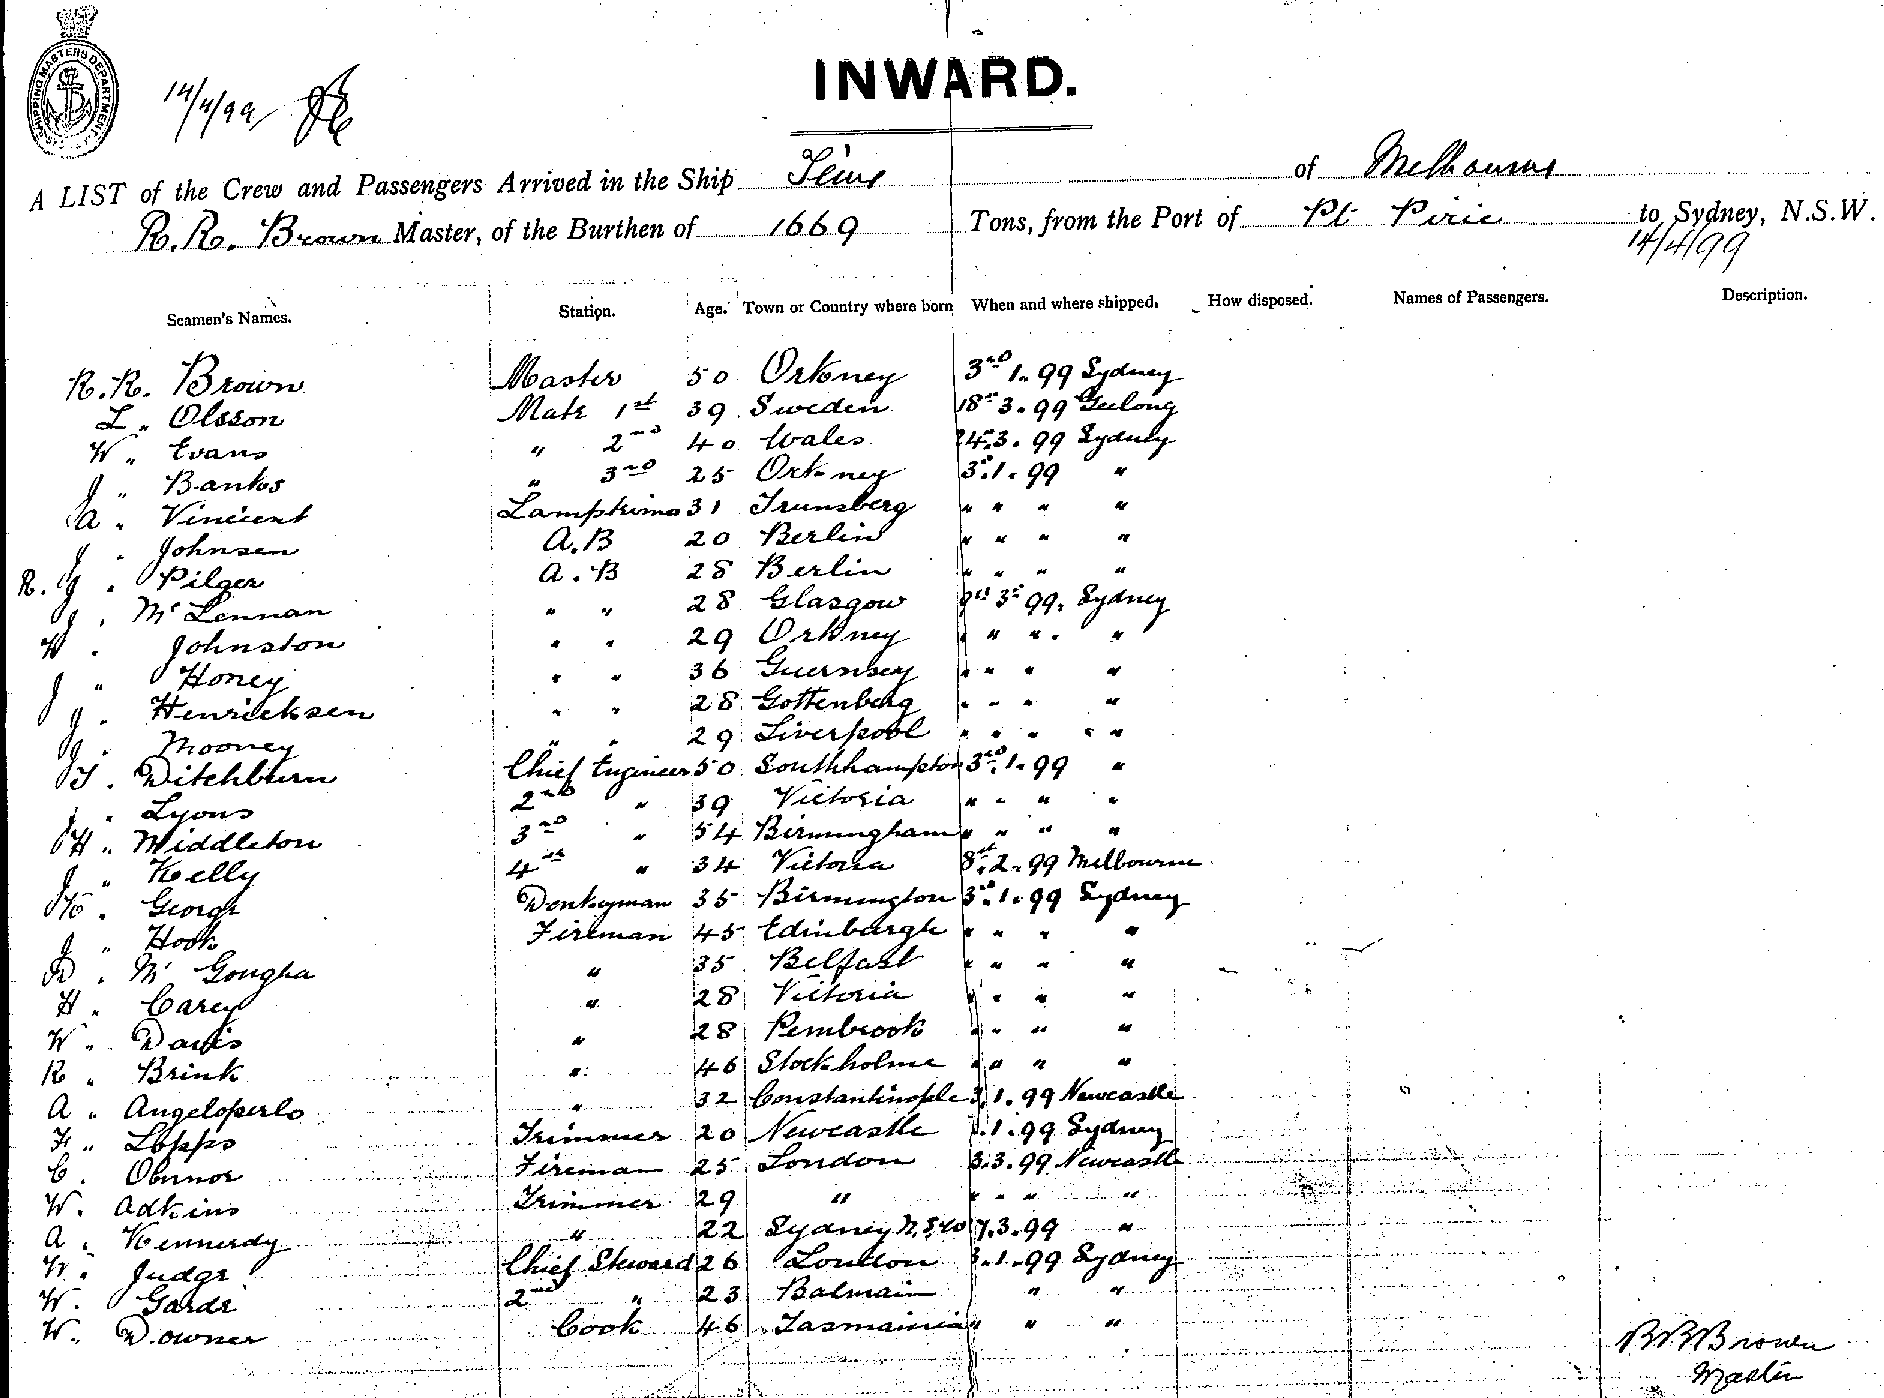 SHIPPING MASTERS DEPARTMENT
14/4/99
INWARD.
A LIST of the Crew and Passengers Arrived in the Ship of Melbourne
R.R. Brown Master, of the Burthen of 1669 Tons, from the Port of Pt Pirie to Sydney, N.S.W.
14/4/99
Seamen's Names. Station. Age. Town or Country where born When and where shipped. How disposed. Names of Passengers. Description.
R.R. Brown Master 50 Orkney 3rd 1. 99 Sydney
L. Olsson Mate 1st 39 Sweden 18th 3. 99 Geelong
W. Evans " 2nd 40 Wales 24. 3. 99 Sydney
J. Banks " 3rd 25 Orkney 3rd. 1. 99 "
A. Vincent 31 " " " "
J. Johnsen A.B 20 Berlin " " " "
R. J. Pilger A.B 28 Berlin " " " "
J. Mc Lennan " " 28 Glasgow 3rd 99. Sydney
W. Johnston " " 29 Orkney " " " "
J. Honey " " 36 Guernsey " " " "
J. Henricksen " " 28 Gottenberg " " " "
J. Mooney " " 29 Liverpool " " " "
T. Ditchburn Chief Engineer 50 Southhampton 3rd. 1. 99 "
J. Lyons 2nd " 39 Victoria " " " "
H. Middleton 3rd " 54 Birmingham " " " "
J. Kelly 4th " 34 Victoria 8th. 2. 99 Melbourne
George Donkeyman 35 Birmington 3rd. 1. 99 Sydney
J. Hook Fireman 45 Edinburgh " " " "
D. Mc Gougha " 35 Belfast " " " "
H. Carey " 28 Victoria " " " "
W. Davis " 28 Pembrook " " " "
R. Brink " 46 Stockholme " " " "
A. Angeloperlo " 32 Constantinople 3. 1. 99 Newcastle
F. Trimmer 20 Newcastle 1. 99 Sydney
C. Fireman 25 London 3. 3. 99 Newcastle
W. Adkins Trimmer 29 " " " " "
A. Kennerdy " 22 Sydney N.S.W 7. 3. 99 "
W. Judge Chief Steward 26 London 3. 1. 99 Sydney
W. 2nd " 23 Balmain " "
W. Downer Cook 46 Tasmainia " " "
R.R. Brown
Master